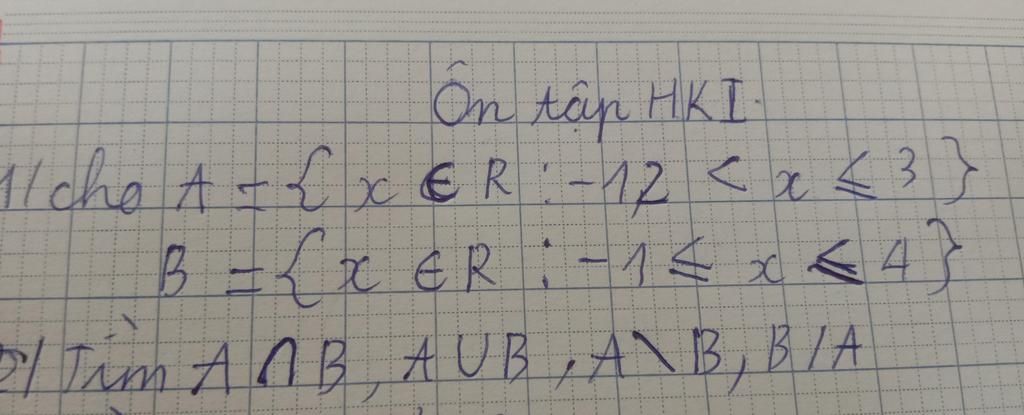 Ôn tập HKI.
1/ cho A = { x ∈ R : -12 < x ≤ 3 }
B = { x ∈ R : -1 ≤ x ≤ 4 }
2/ Tìm A ∩ B, A ∪ B, A \ B, B / A